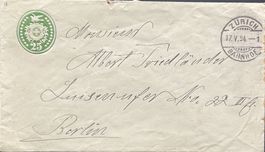 25
ZÜRICH
17.V.94.–1
BAHNHOF
Monsieur
Albert Friedländer
Luisenufer No. 22 III
Berlin